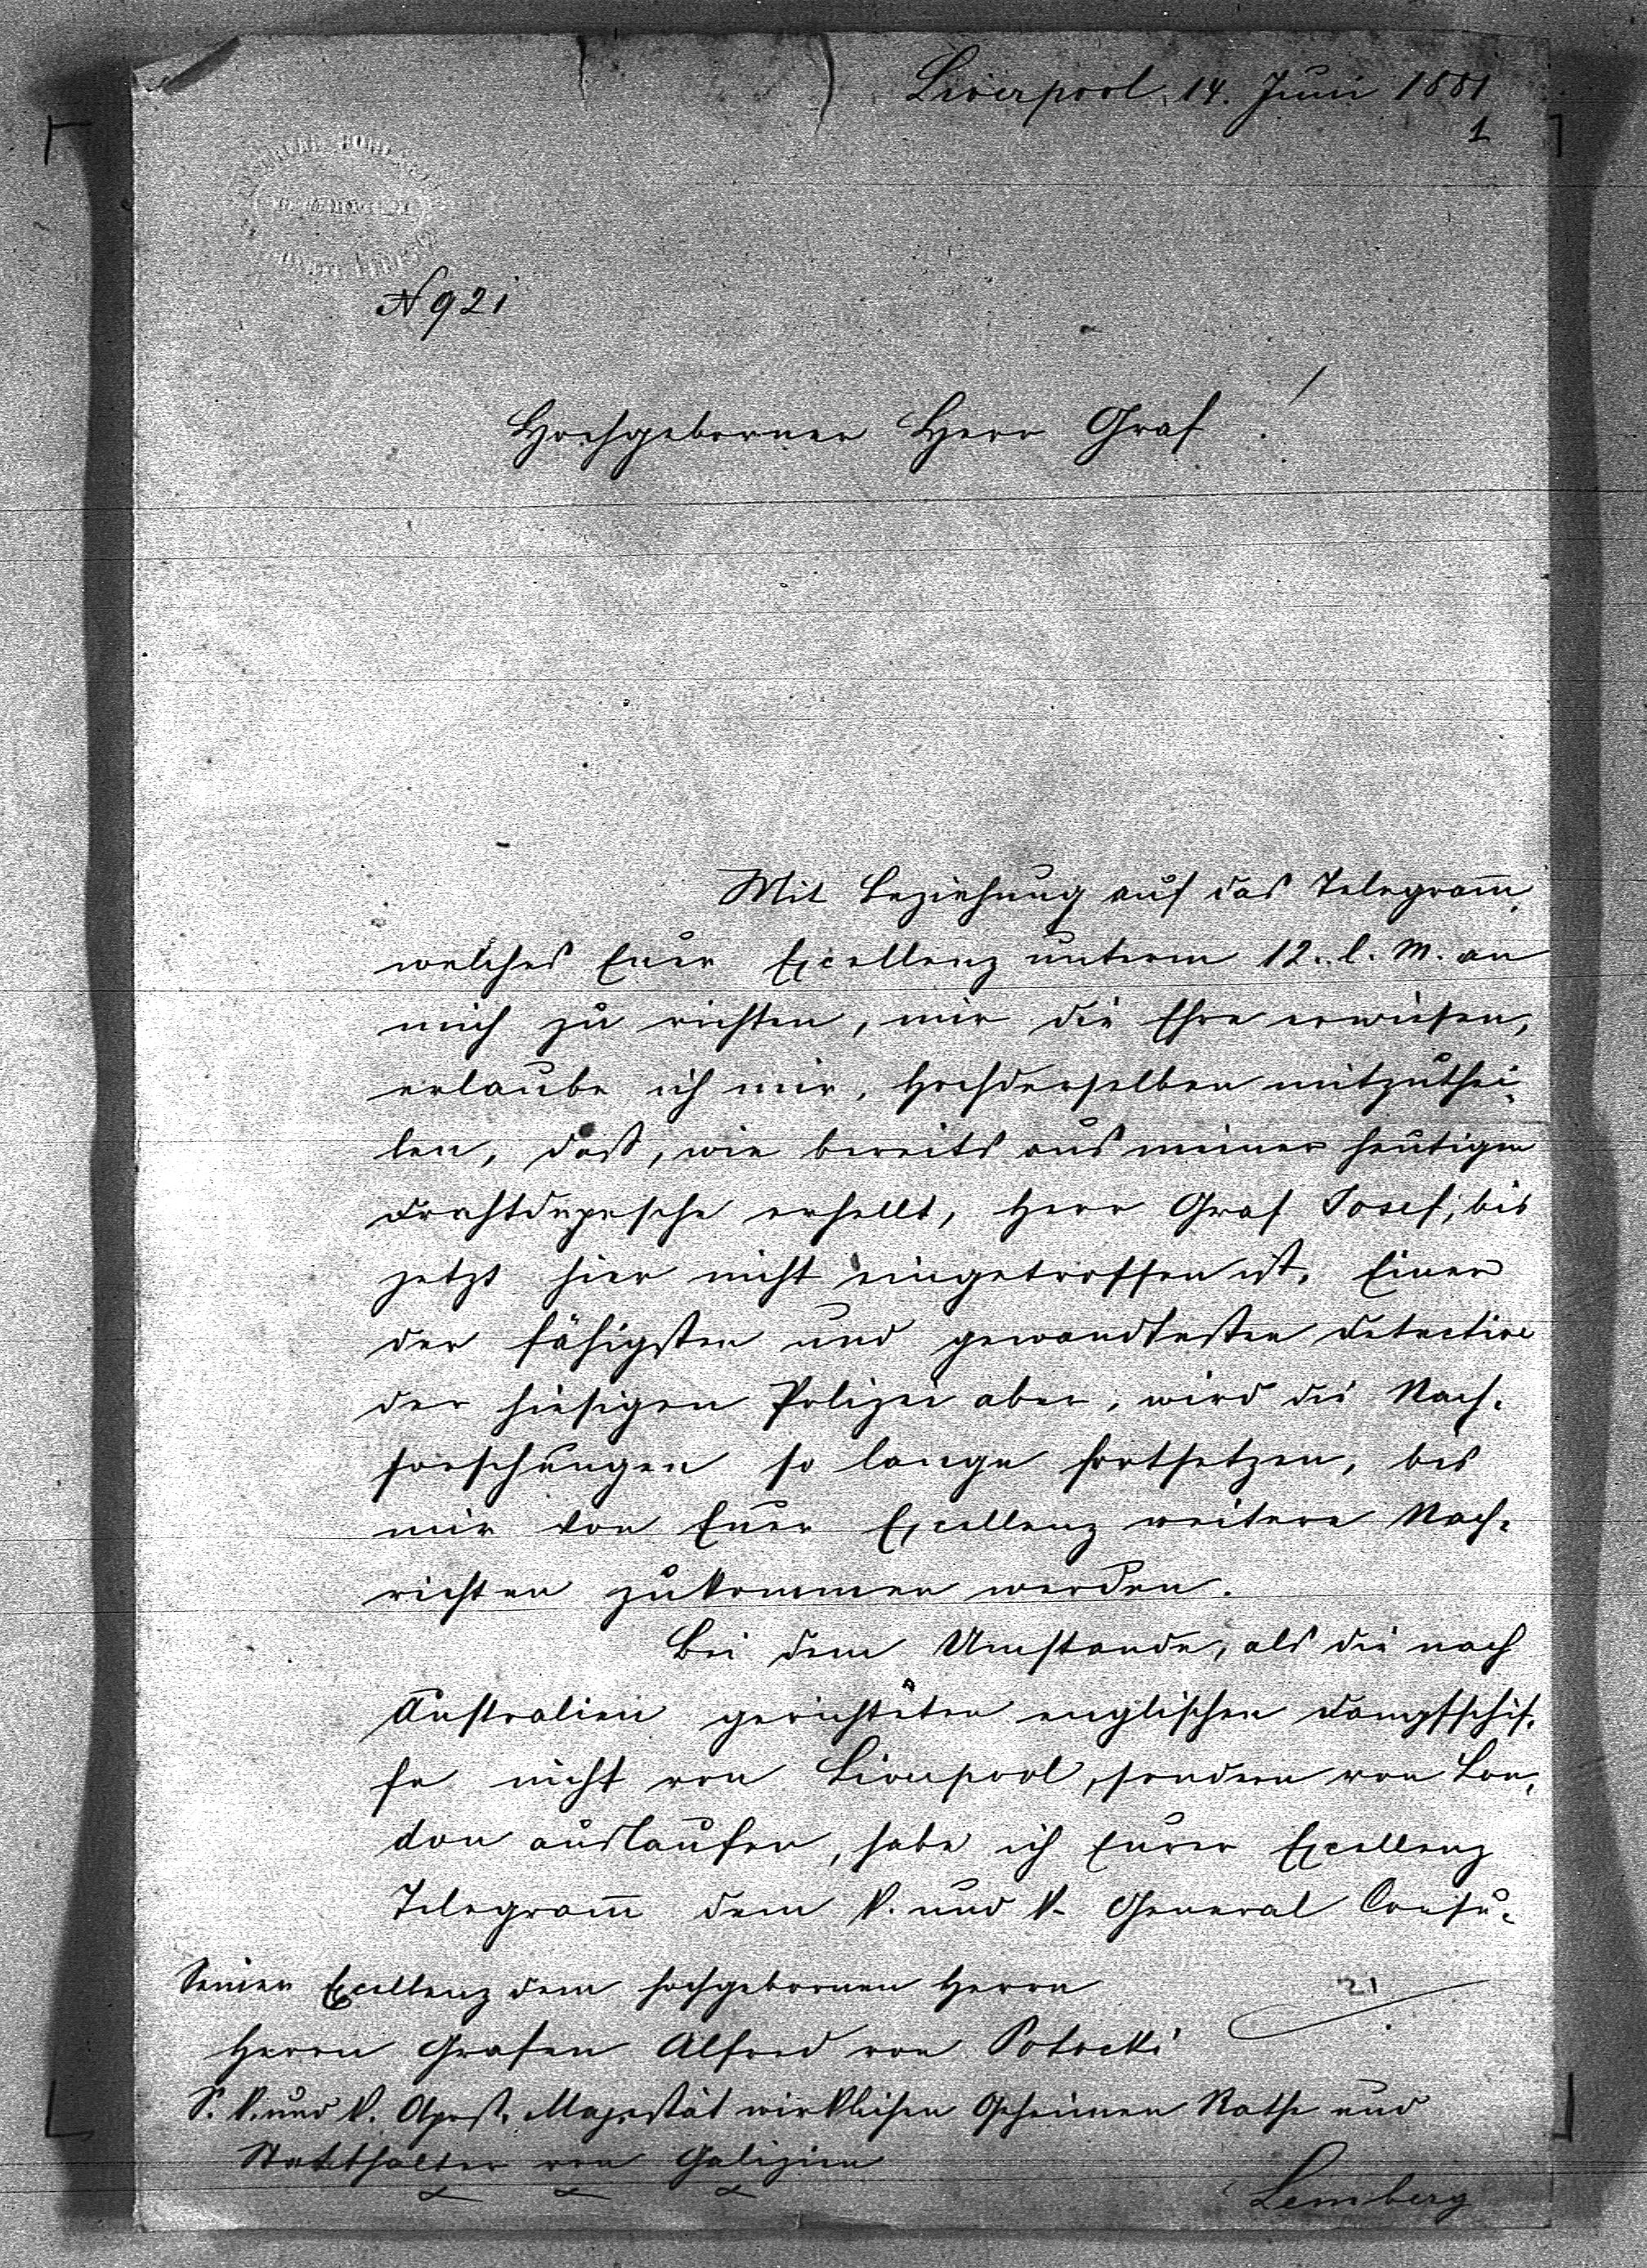 Liverpool, 14. Juni 1881
1
N 921
Hochgeborner Herr Graf!
Mit Beziehung auf das Telegram̅,
welches Euer Excellenz unterm 12. l. M. an
mich zu richten, mir die Ehre erwiesen,
erlaube ich mir, Hochderselben mitzuthei-
len, daß, wie bereits aus meiner heutigen
Drahtdepesche erhellt, Herr Graf Josef, bis
jetzt hier nicht eingetroffen ist. Einer
der fähigsten und gewandtesten Detective
der hiesigen Polizei aber, wird die Nach-
forschungen so lange fortsetzen, bis
mir von Euer Excellenz weitere Nach-
richten zukommen werden.
Bei dem Umstande, als die nach
Australien gerichteten englischen Dampfschif-
fe nicht von Liverpool, sondern von Lon-
don auslaufen, habe ich Eurer Excellenz
Telegram̅ dem k. und k. General Consu-
Seiner Excellenz dem hochgebornen Herrn
21
Herrn Grafen Alfred von Potocki
S. k. und k. Apost. Majestät wirklichen Geheimen Rathe und
Statthalter von Galizien
Lemberg